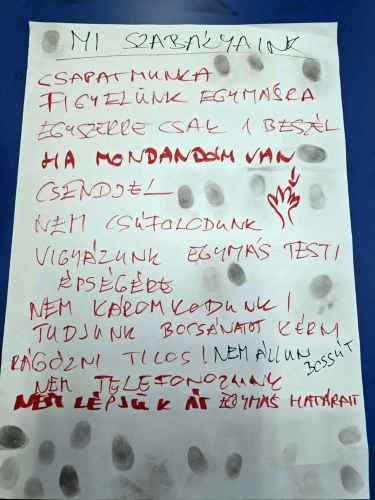 MI SZABÁLYAINK
CSAPATMUNKA
FIGYELÜNK EGYMÁSRA
EGYSZERRE CSAK 1 BESZÉL
HA MONDANDÓM VAN
CSENDJEL
NEM CSÚFOLODUNK
VIGYÁZUNK EGYMÁS TESTI
ÉPSÉGÉRE
NEM KÁROMKODUNK!
TUDJUNK BOCSÁNATOT KÉRNI
RÁGÓZNI TILOS! NEM ÁLLUN BOSSÚT
NEM TELEFONOZUNK
NEM LÉPJÜK ÁT EGYMÁS HATÁRAIT